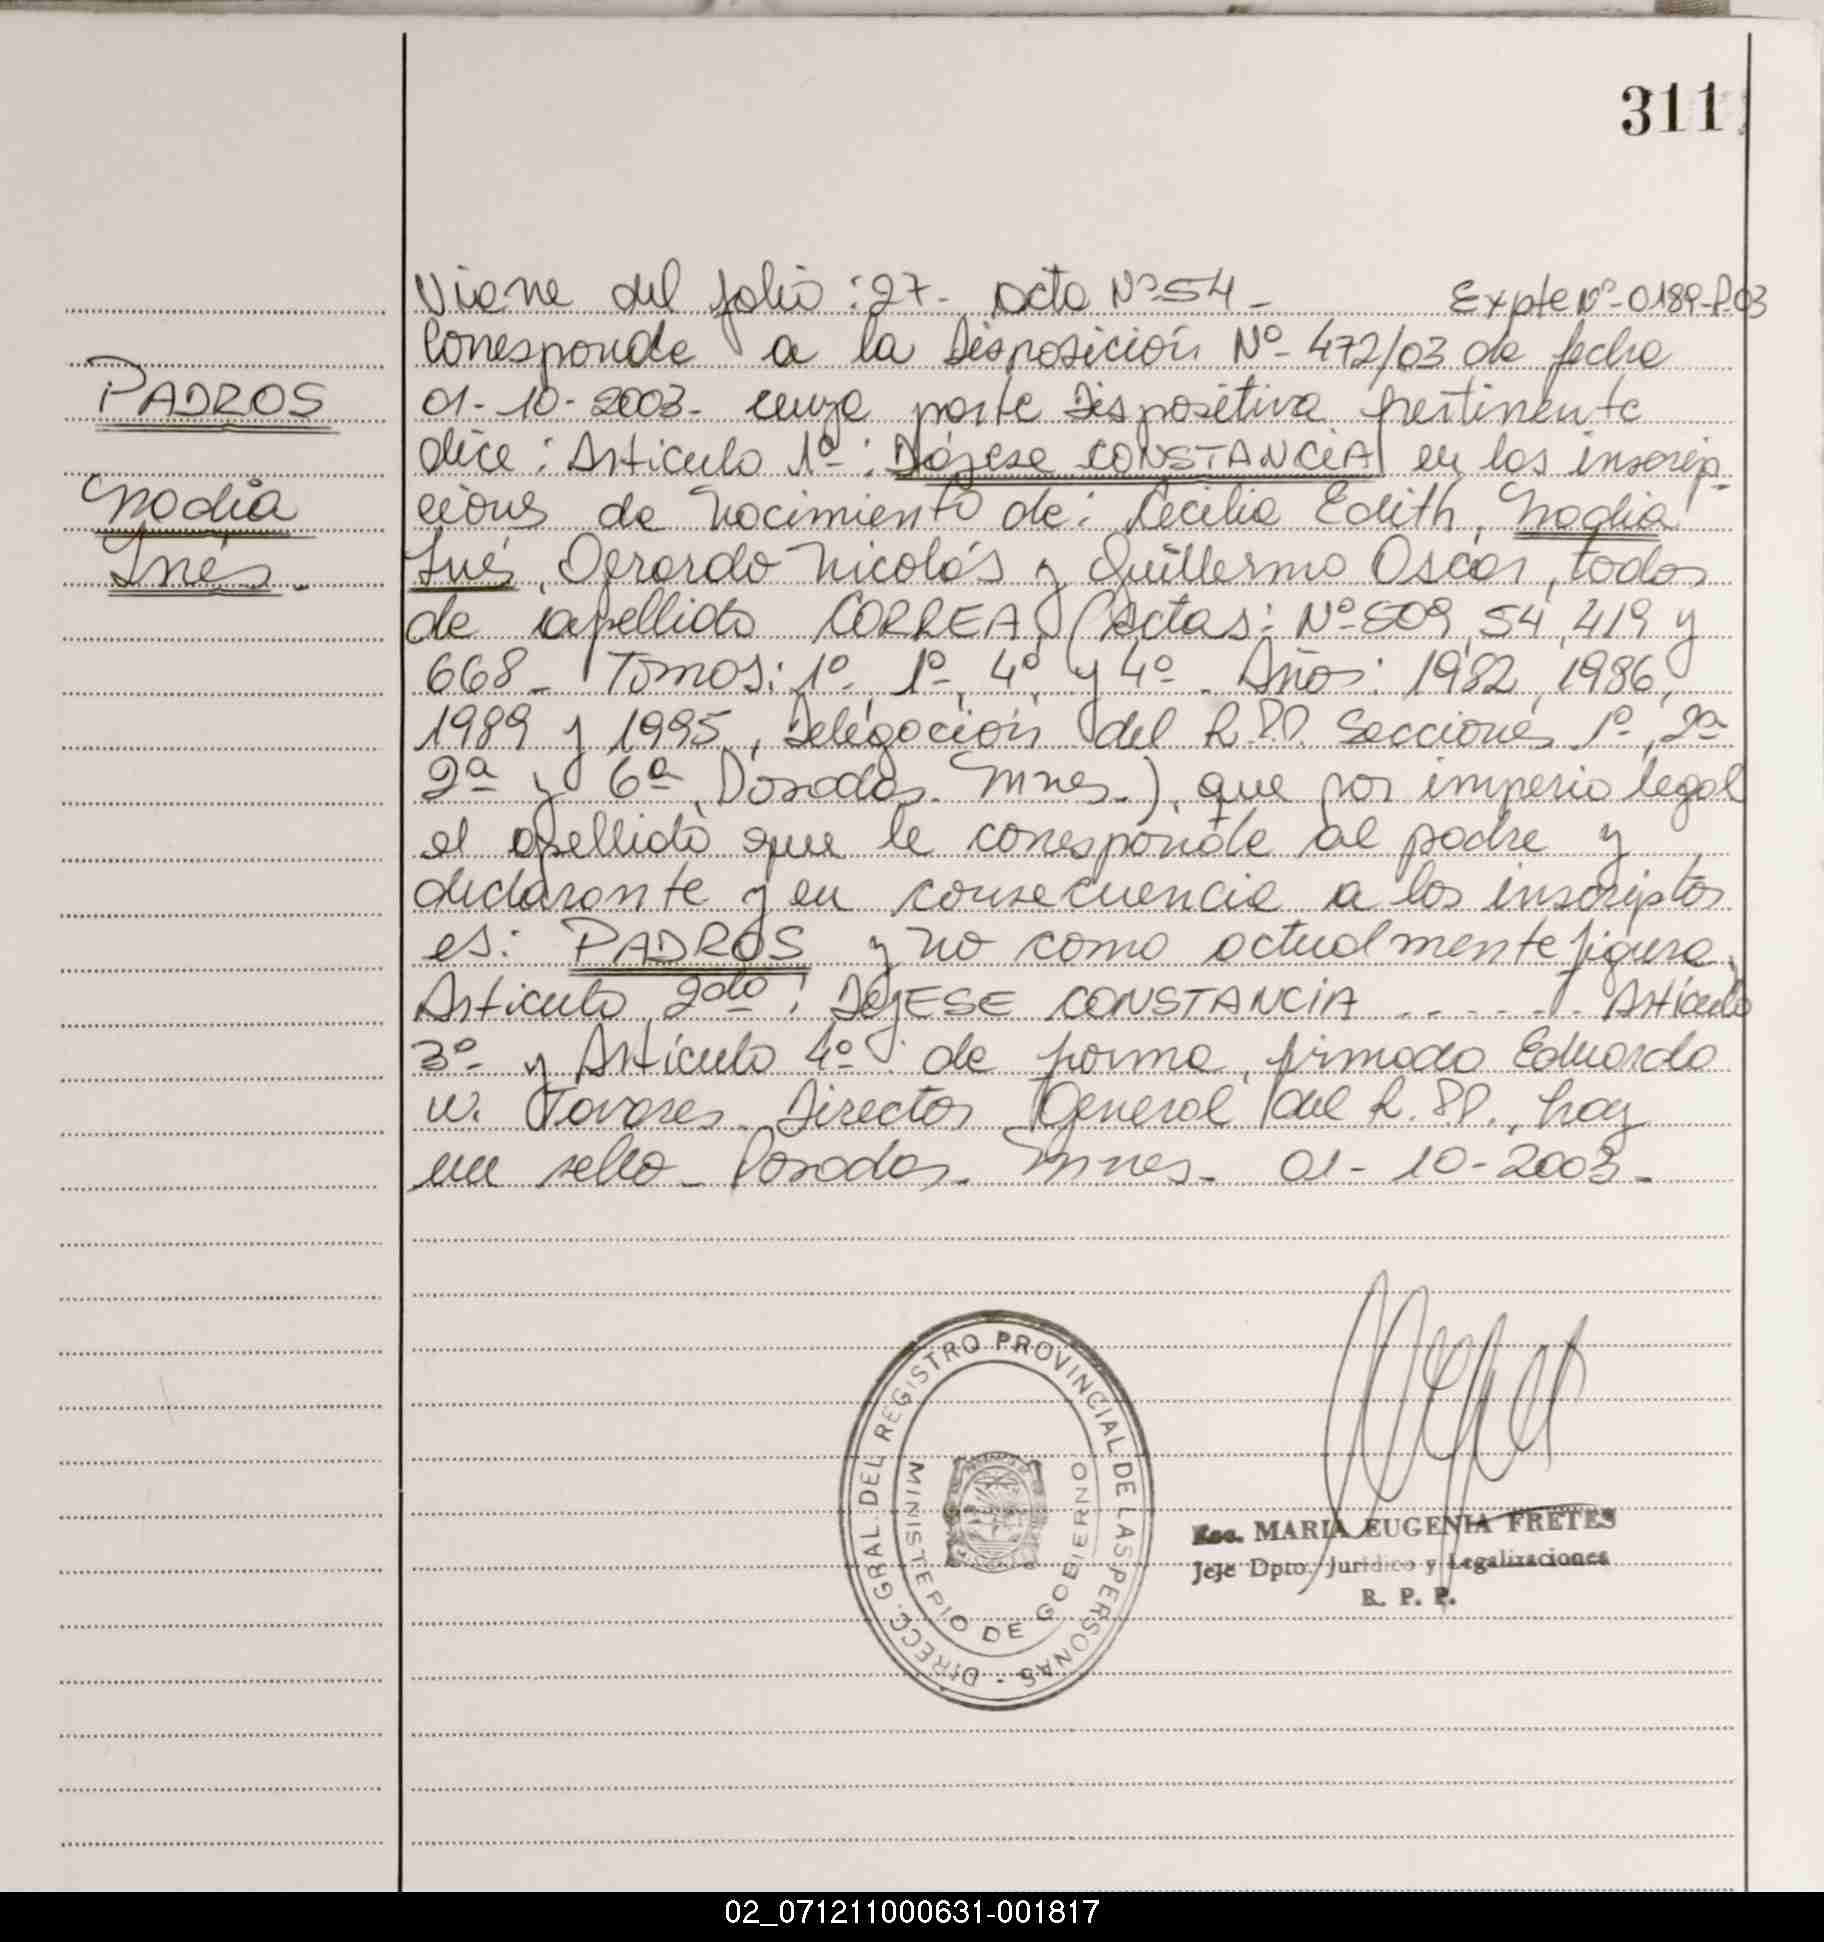 311
Viene del folio: 27- Acta Nº 54- Expte Nº-0189-P-03
Corresponde a la Disposición Nº- 472/03 de fecha
PADROS
01-10-2003- cuya parte Dispositiva pertinente
dice: Articulo 1º: Déjese CONSTANCIA en las inscrip-
Nadia
ciones de Nacimiento de: Cecilia Edith, Nadia
Inés.
Inés, Gerardo Nicolás y Guillermo Oscar, todos
de apellido CORREA, (Actas: Nº 509, 54, 419 y
668- Tomos: 1º, 1º, 4º y 4º. Años: 1982, 1986,
1989 y 1995, Delegación del R.P.P. Secciones 1ª, 2ª
2ª y 6ª, Posadas. Mnes.), que por imperio legal
el apellido que le corresponde al padre y
declarante y en consecuencia a los inscriptos
es: PADROS y no como actualmente figura.
Articulo 2do: DéjESE CONSTANCIA ....... Articulo
3º y Articulo 4º de forma, firmado Eduardo
W. Tavares. Director General del R.P.P., hay
un sello- Posadas. Mnes- 01-10-2003-
DIRECC. GRAL DEL REGISTRO PROVINCIAL DE LAS PERSONAS -
MINISTERIO DE GOBIERNO
Esc. MARIA EUGENIA FRETES
Jefe Dpto. Jurídico y Legalizaciones
R. P. P.
02_071211000631-001817